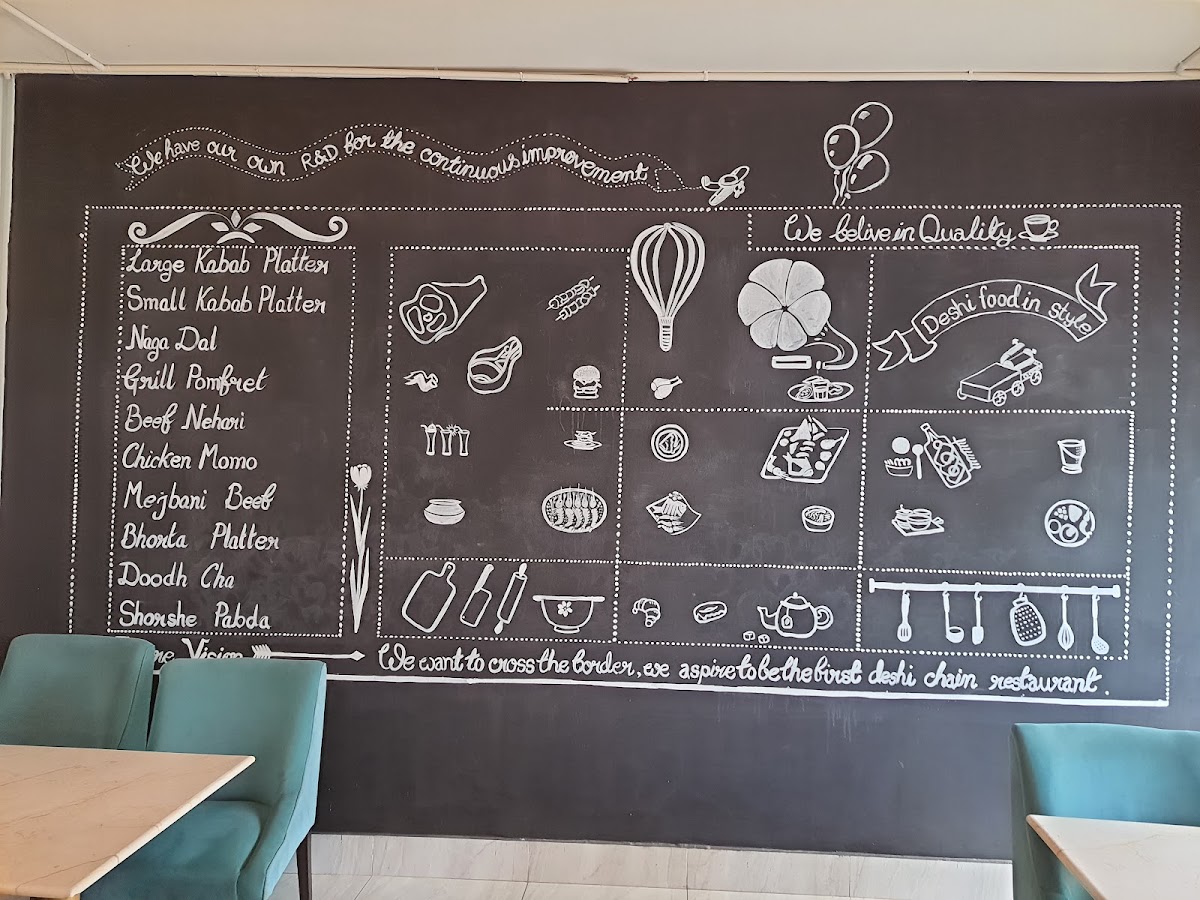 We have our own R&D for the continuous improvement
We belive in Quality
Large Kabab Platter
Small Kabab Platter
Naga Dal
Grill Pomfret
Beef Nehari
Chicken Momo
Mejbani Beef
Bhorta Platter
Doodh Cha
Shorshe Pabda
Deshi food in style
Vision
We want to cross the border, we aspire to be the first deshi chain restaurant.